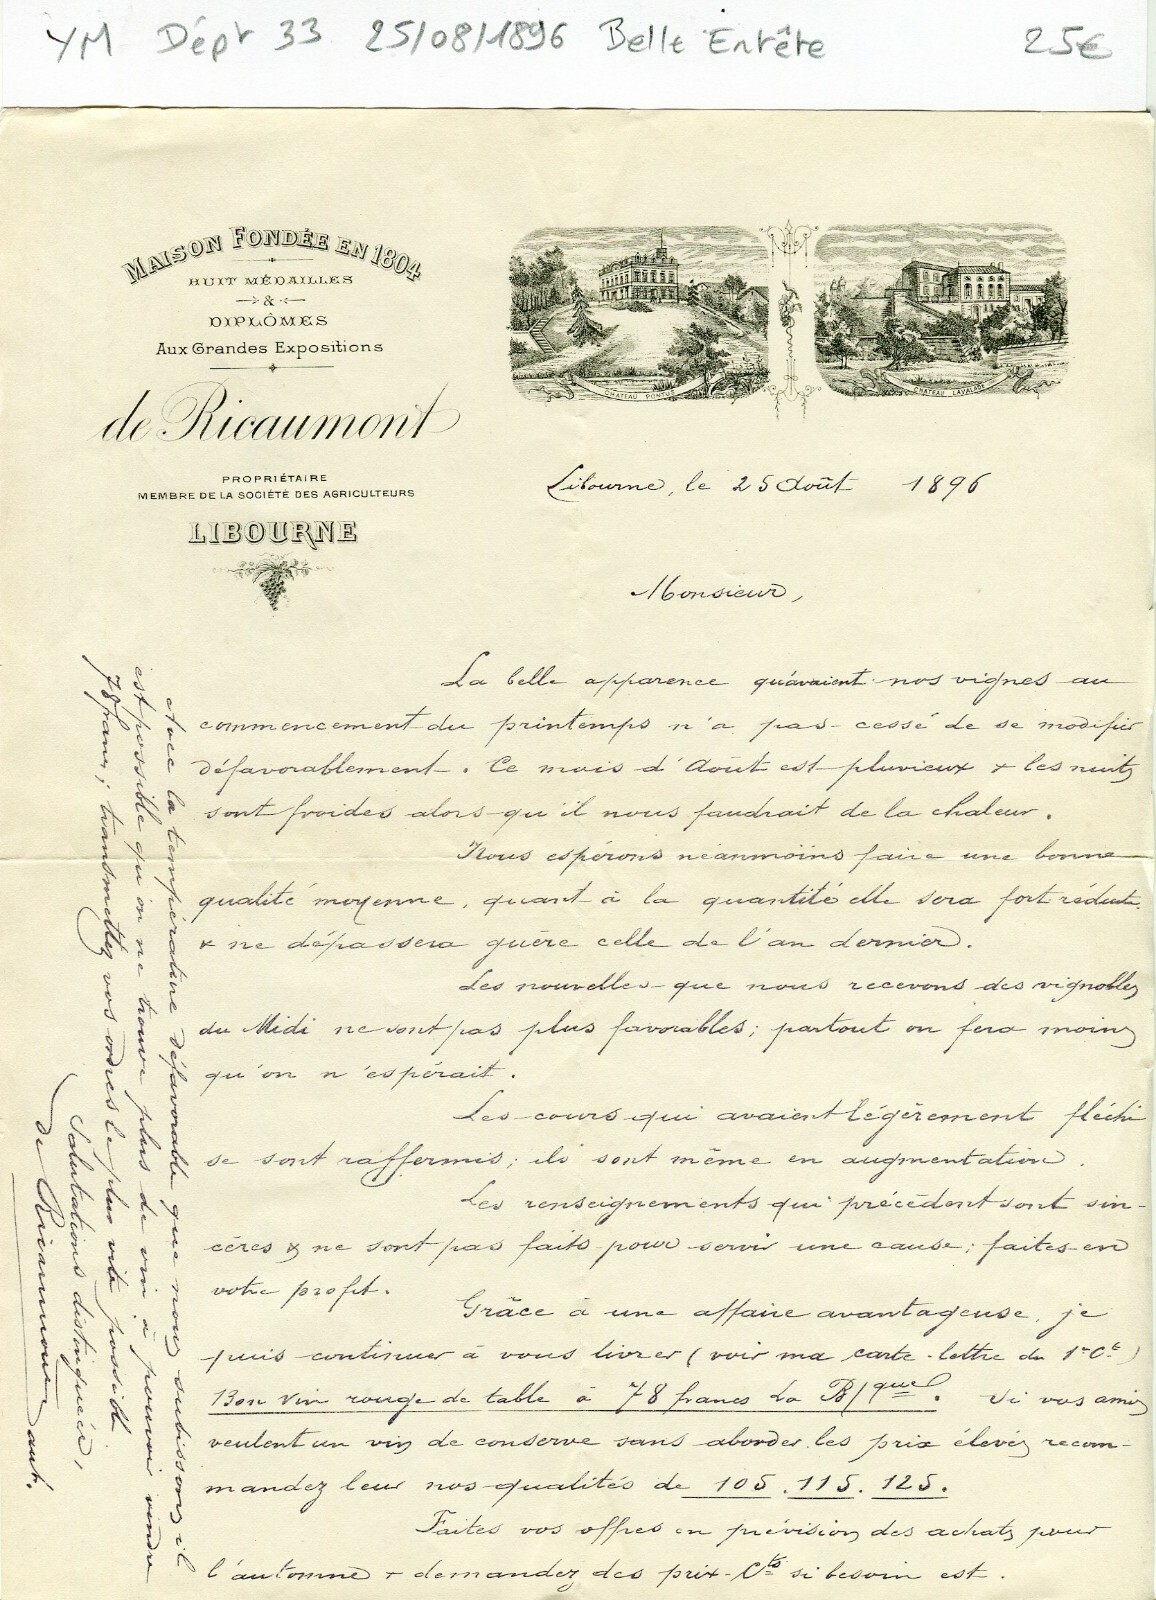 YM Dépt 33 25/08/1896 Belle Entête 25€
MAISON FONDÉE EN 1804
HUIT MÉDAILLES
&
DIPLÔMES
Aux Grandes Expositions
de Ricaumont
PROPRIÉTAIRE
MEMBRE DE LA SOCIÉTÉ DES AGRICULTEURS
LIBOURNE
CHATEAU PONTUS
CHATEAU LAVALADE
Libourne, le 25 Août 1896
Monsieur,
La belle apparence qu'avaient nos vignes au
commencement du printemps n'a pas cessé de se modifier
défavorablement. Ce mois d'Août est pluvieux & les nuits
sont froides alors qu'il nous faudrait de la chaleur.
Nous espérons néanmoins faire une bonne
qualité moyenne, quant à la quantité elle sera fort réduite
& ne dépassera guère celle de l'an dernier.
Les nouvelles que nous recevons des vignobles
du Midi ne sont pas plus favorables; partout on fera moins
qu'on n'espérait.
Les cours qui avaient légèrement fléchi
se sont raffermis; ils sont même en augmentation.
Les renseignements qui précèdent sont sin-
cères & ne sont pas faits pour servir une cause; faites-en
votre profit.
Grâce à une affaire avantageuse, je
puis continuer à vous livrer (voir ma carte-lettre du 1er Ct)
Bon Vin rouge de table à 78 francs La B/que. Si vos amis
veulent un vin de conserve sans aborder les prix élevés recom-
mandez leur nos qualités de 105. 115. 125.
Faites vos offres en prévision des achats pour
l'automne & demandez des prix-Cts si besoin est.
Avec la température défavorable que nous subissons, il
est possible qu'on ne trouve plus de vin à pouvoir vendre
78 francs; transmettez vos ordres le plus vite possible
Salutations distinguées,
de Ricaumont aut.